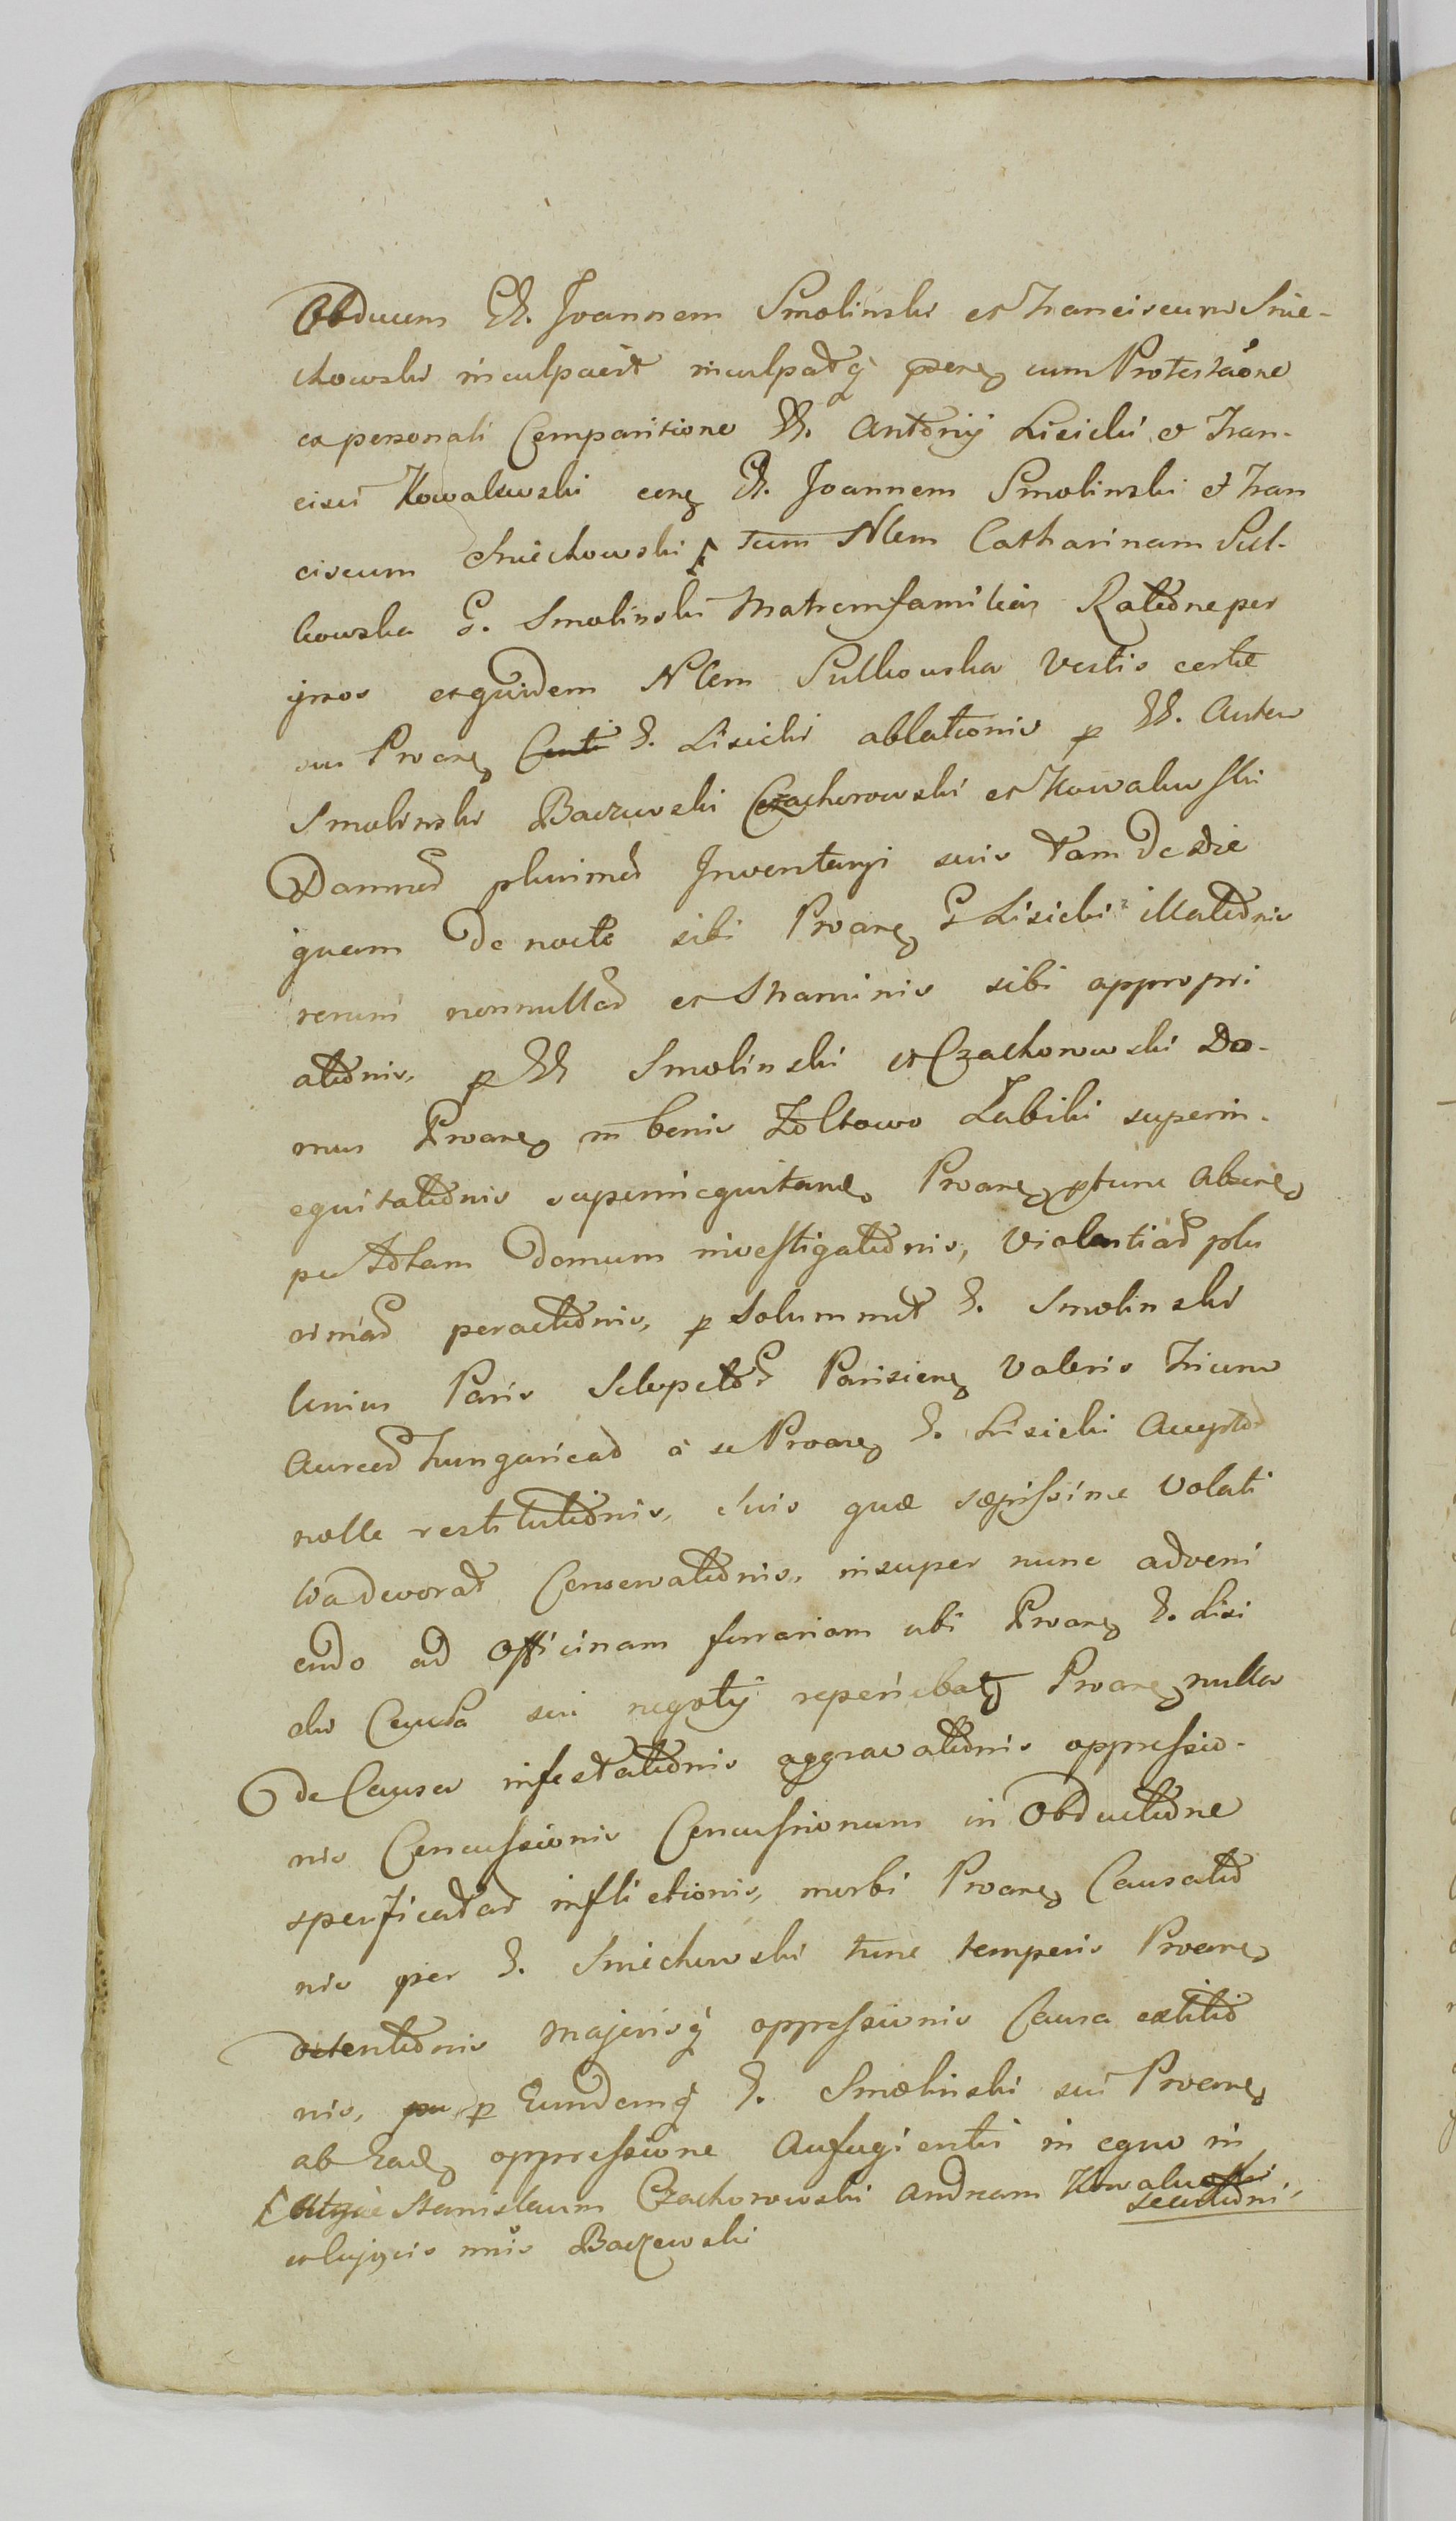 Obducum GG. Joannem Smolinski et Franciscum Snie-
chowski inculpavit inculpatq prns cum Protestaone
ea personali Comparitione GG. Antonij Lisicki & Fran-
cisci Kowalewski cong G. Joannem Smolinski et Fran
ciscum Sniechowski tum Nlem Catharinam Sul-
kowska G. Smolinski Matremfamilias Ratione per
ipsos et quidem Nlem Sulkowska Vestis certae
suo Proane G. Lisicki ablationis p GG. Anton
Smolinski Baczewski Czachorowski et Kowalewski
Damnor plurimor Inventarij suis tam de die
quam de nocte sibi Proane G Lisicki illationis
rerum nonnullar et Straminis sibi appropri
ationis, p GG Smolinski et Czachorowski Do-
mus Proane in bonis Zoltowo Labiki superin-
equitationis superinequitando Proane ptunc absente
per totam Domum investigationis, Violentiar plu
rimar peractionis, p Solummet G. Smolinski
Unius Paris Sclopetor Parisien Valoris Trium
Aureor hungaricar a se Proane G. Lisicki Acceptor
nolle restitutionis, Suis quae saepissime Volati
wa dworat Conservationis, insuper nunc adveni
endo ad Officinam ferrariam ubi Proane G. Lisi
cki Causa sui negotij reperiebatq Proane nulla
de Causa infestationis aggravationis oppressio-
nis Concussionis Concussionum in Obductione
specificatar inflictionis, morbi Proane Causatio
nis per G. Sniechowski tunc temporis Proane
detentionis majorisq oppressionis Causa extitio
nis, p Eundemq G. Smolinski sui Proane
ab Eade oppressione Aufugientis in equo in
secutioni,
Stanislaum Czachorowski Andream Kowalewski
Baczewski